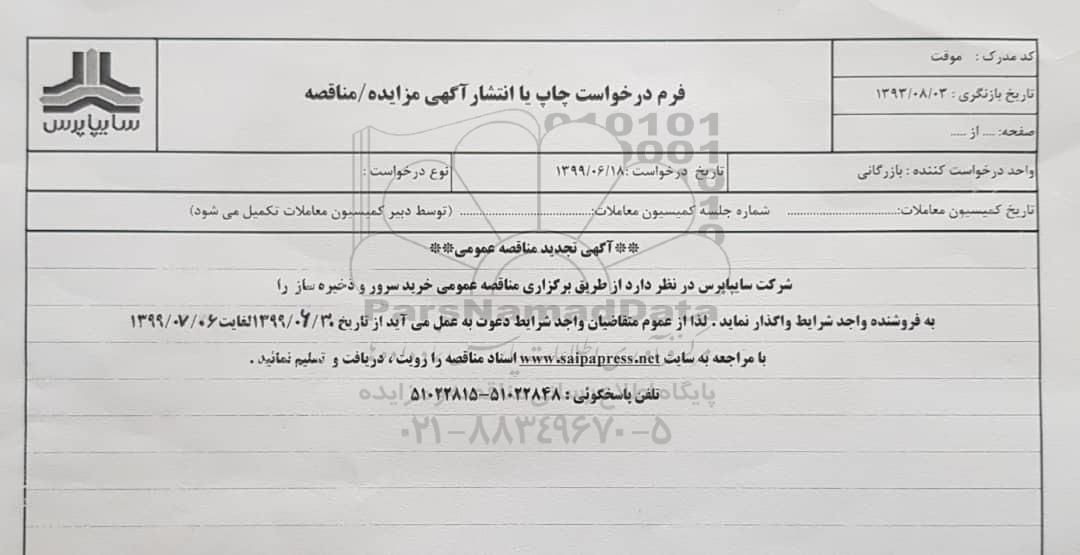 سایپاپرس
فرم درخواست چاپ یا انتشار آگهی مزایده/مناقصه
کد مدرک : موقت
تاریخ بازنگری : ۱۳۹۳/۰۸/۰۳
صفحه: .... از .....
واحد درخواست کننده : بازرگانی
تاریخ درخواست :۱۳۹۹/۰۶/۱۸
نوع درخواست :
تاریخ کمیسیون معاملات:................................ شماره جلسه کمیسیون معاملات:...................................... (توسط دبیر کمیسیون معاملات تکمیل می شود)
**آگهی تجدید مناقصه عمومی**
شرکت سایپاپرس در نظر دارد از طریق برگزاری مناقصه عمومی خرید سرور و ذخیره ساز را
به فروشنده واجد شرایط واگذار نماید . لذا از عموم متقاضیان واجد شرایط دعوت به عمل می آید از تاریخ ۱۳۹۹/۰۶/۳۰ لغایت ۱۳۹۹/۰۷/۰۶
با مراجعه به سایت www.saipapress.net اسناد مناقصه را رویت ، دریافت و تسلیم نمائید .
تلفن پاسخگوئی : ۵۱۰۲۲۸۴۸-۵۱۰۲۲۸۱۵
ParsNamadData
پایگاه اطلاع رسانی مناقصه و مزایده
۰۲۱-۸۸۳۴۹۶۷۰-۵